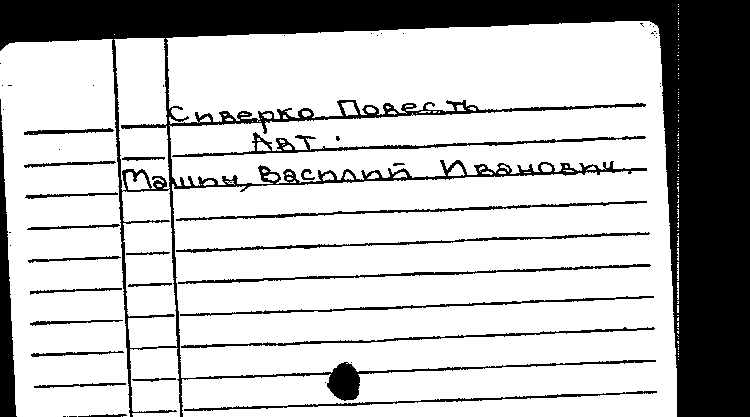 Сиверко Повесть
Авт.:
Машин, Василий Иванович.